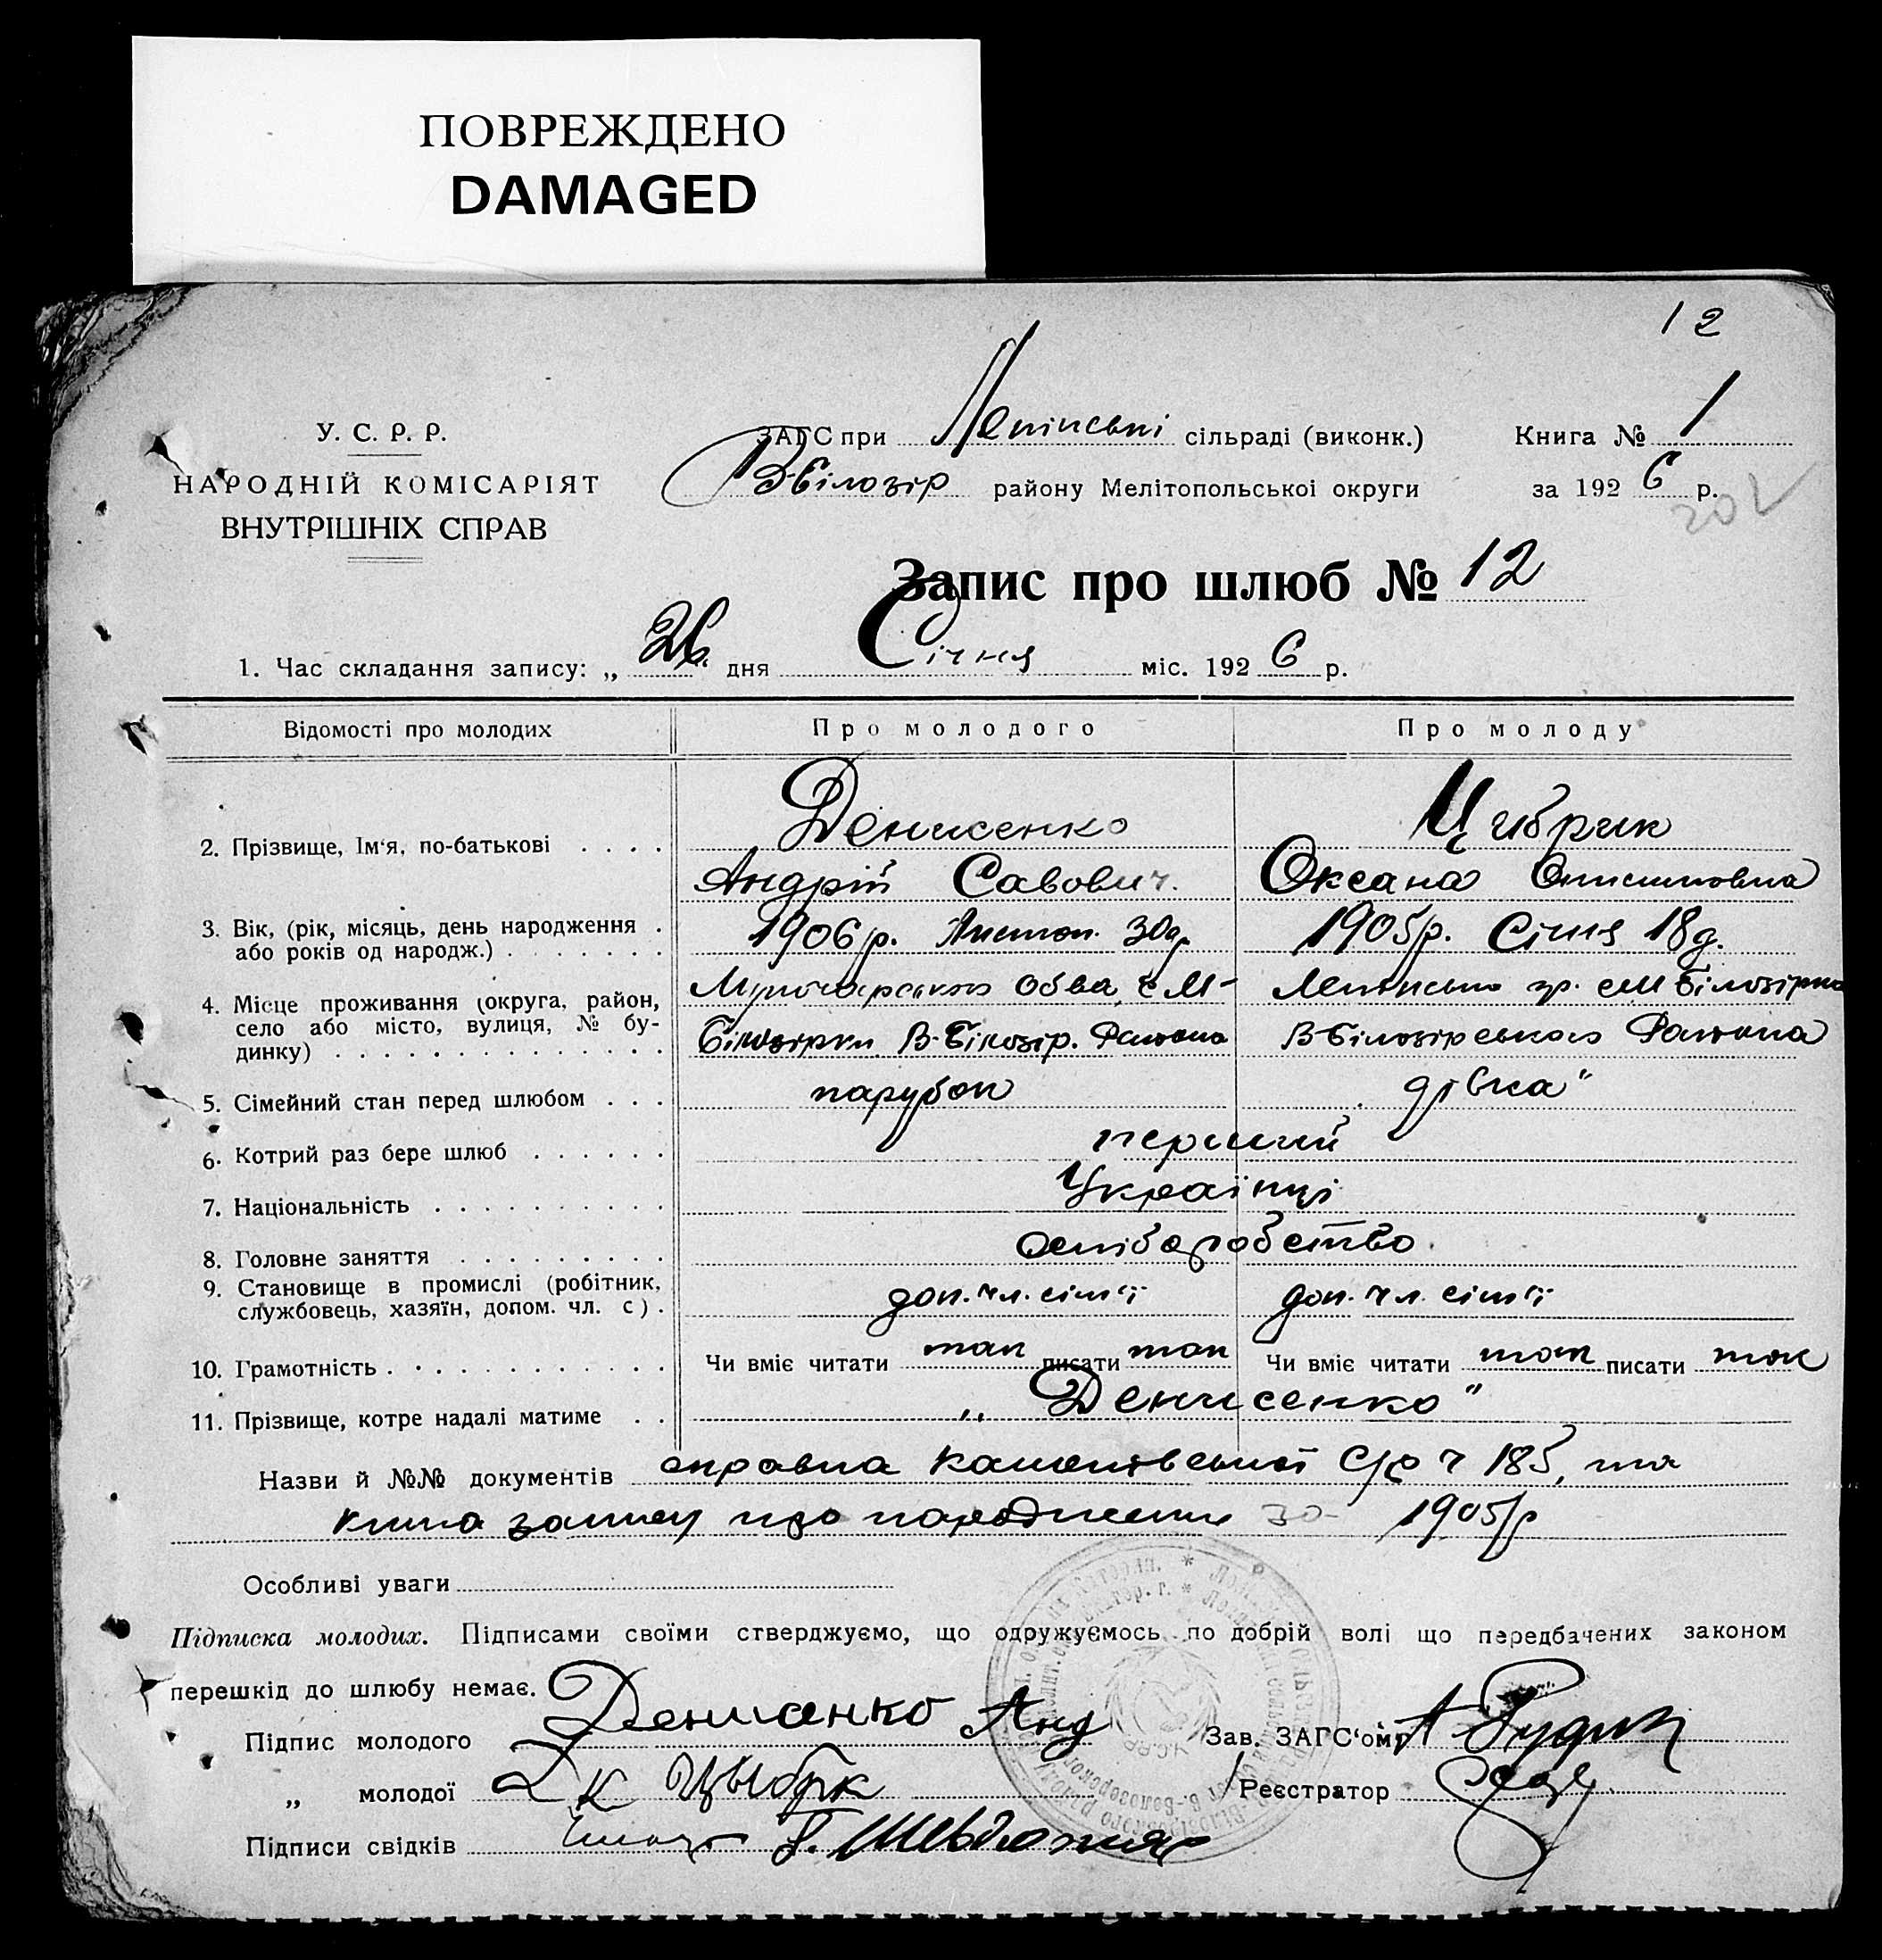 ПОВРЕЖДЕНО
DAMAGED
12
У. С. Р. Р.
НАРОДНІЙ КОМІСАРІЯТ
ВНУТРІШНІХ СПРАВ
ЗАГС при Ленінські сільраді (виконк.) Книга № 1
В-Білозір району Мелітопольськоі округи за 1926 р.
Запис про шлюб № 12
1. Час складання запису: „ 26. дня Січня міс. 1926 р.
Відомості про молодих Про молодого Про молоду
2. Прізвище, Ім'я, по-батькові Денисенко Цибрик
Андрій Савович. Оксана
3. Вік, (рік, місяць, день народження або років од народж.) 1906 р. Листоп. 30 д. 1905 р. Січня 18 д.
4. Місце проживання (округа, район, село або місто, вулиця, № будинку) с М-Білозірки В-Білозір. Району Ленінська гр. с М Білозірка В-Білозірського Району
5. Сімейний стан перед шлюбом парубок дівка"
6. Котрий раз бере шлюб перший
7. Національність Українці
8. Головне заняття
9. Становище в промислі (робітник, службовець, хазяїн, допом. чл. с) доп. чл. сім'ї доп. чл. сім'ї
10. Грамотність Чи вміє читати так писати так Чи вміє читати так писати так
11. Прізвище, котре надалі матиме „Денисенко"
Назви й №№ документів справка 185, та
книга запису про народження за 1905 р
Особливі уваги
Підписка молодих. Підписами своїми стверджуємо, що одружуємось по добрій волі що передбачених законом
перешкід до шлюбу немає.
Підпис молодого Денисенко Анд Зав. ЗАГС'ом
„ молодої Цыбрк Реєстратор
Підписи свідків